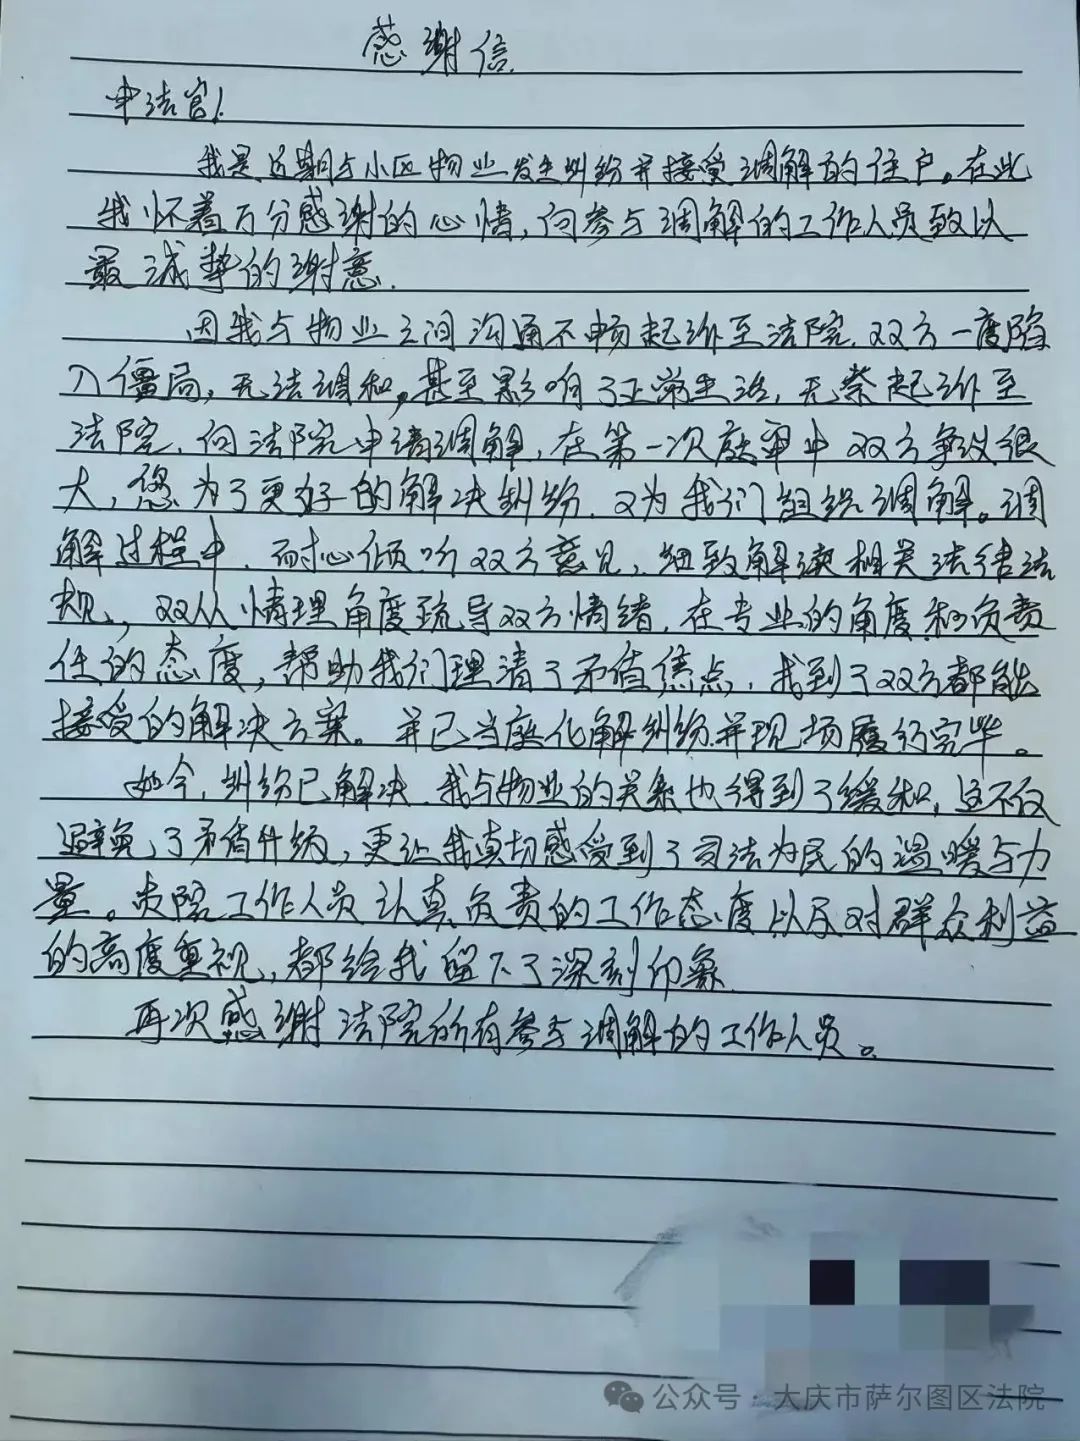 感谢信
申法官!
我是近期与小区物业发生纠纷并接受调解的住户。在此
我怀着万分感谢的心情,向参与调解的工作人员致以
最诚挚的谢意.
因我与物业之间沟通不畅起诉至法院.双方一度陷
入僵局,无法调和,甚至影响了正常生活,无奈起诉至
法院,向法院申请调解,在第一次庭审中双方争议很
大,您为了更好的解决纠纷.又为我们组织调解。调
解过程中.耐心倾听双方意见,细致解读相关法律法
规,又从情理角度疏导双方情绪.在专业的角度和负责
任的态度,帮助我们理清了矛盾焦点,找到了双方都能
接受的解决方案。并已当庭化解纠纷并现场履行完毕。
如今,纠纷已解决.我与物业的关系也得到了缓和,这不仅
避免了矛盾升级,更让我真切感受到了司法为民的温暖与力
量。贵院工作人员认真负责的工作态度以及对群众利益
的高度重视,都给我留下了深刻印象.
再次感谢法院所有参与调解的工作人员。
公众号·大庆市萨尔图区法院